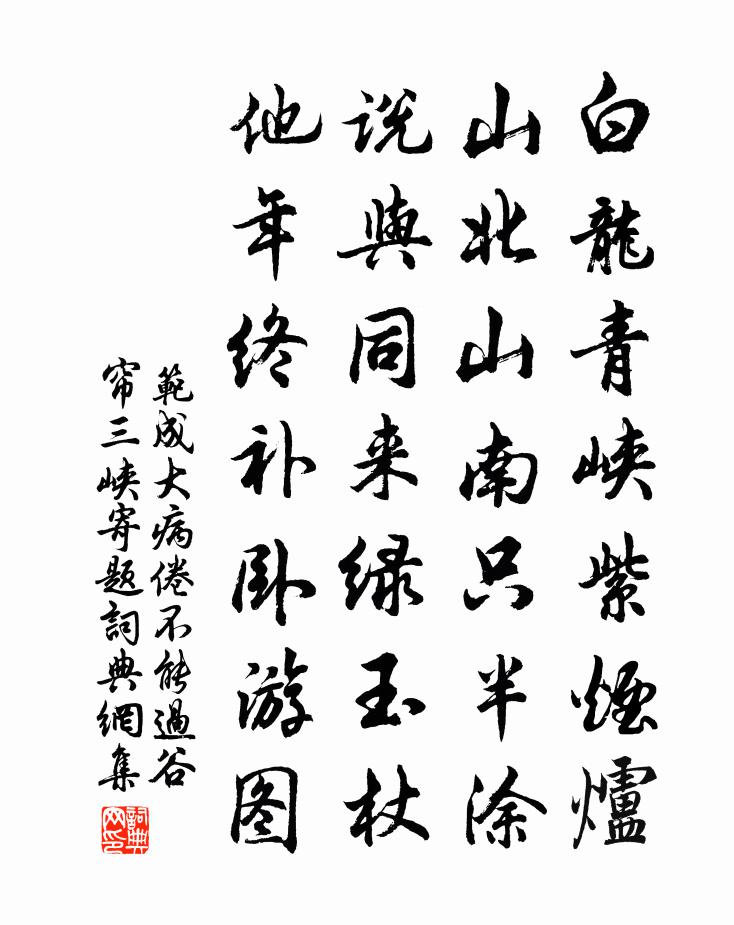 白龍青峡紫煙爐
山北山南只半涂
説與同来緑玉杖
他年终补卧游图
範成大病倦不能過谷
帘三峡寄题詞典網集
詞典网印